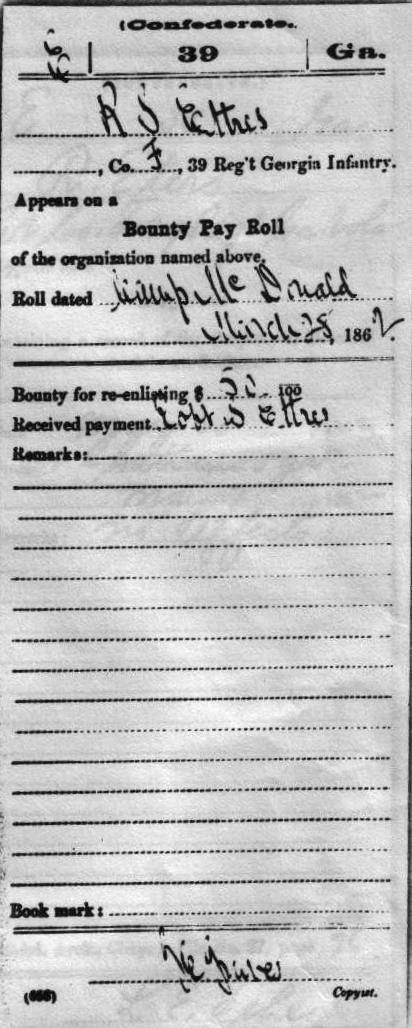 (Confederate.
39 Ga.
R S Ettres
, Co. F, 39 Reg't Georgia Infantry.
Appears on a
Bounty Pay Roll
of the organization named above.
Roll dated Camp Mc Donald
March 28, 1862.
Bounty for re-enlisting $ 50 100
Received payment Robt S Ettres
Remarks:
Book mark:
(656) Copyist.